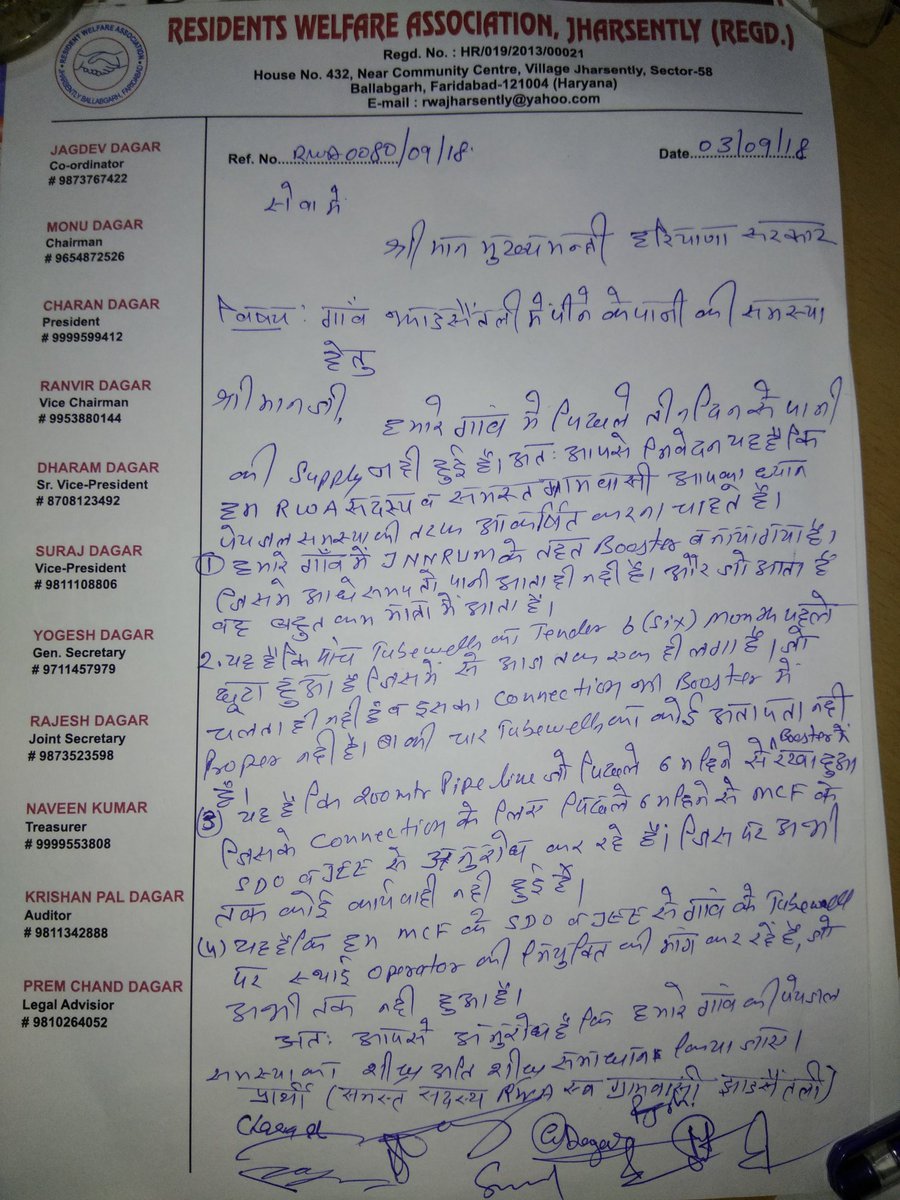 RESIDENTS WELFARE ASSOCIATION, JHARSENTLY (REGD.)
Regd. No. : HR/019/2013/00021
House No. 432, Near Community Centre, Village Jharsently, Sector-58
Ballabgarh, Faridabad-121004 (Haryana)
E-mail : rwajharsently@yahoo.com
RESIDENT WELFARE ASSOCIATION
JHARSENTLY BALLABGARH, FARIDABAD
JAGDEV DAGAR
Co-ordinator
# 9873767422
MONU DAGAR
Chairman
# 9654872526
CHARAN DAGAR
President
# 9999599412
RANVIR DAGAR
Vice Chairman
# 9953880144
DHARAM DAGAR
Sr. Vice-President
# 8708123492
SURAJ DAGAR
Vice-President
# 9811108806
YOGESH DAGAR
Gen. Secretary
# 9711457979
RAJESH DAGAR
Joint Secretary
# 9873523598
NAVEEN KUMAR
Treasurer
# 9999553808
KRISHAN PAL DAGAR
Auditor
# 9811342888
PREM CHAND DAGAR
Legal Advisior
# 9810264052
Ref. No. RWA0080/09/18. Date 03/09/18
सेवा में
श्री मान मुख्यमन्त्री हरियाणा सरकार
विषय: गांव झाडसैंतली में पीने के पानी की समस्या
हेतु
श्री मान जी,
हमारे गांव में पिछले तीन दिन से पानी
की Supply नही हुई है। अतः आपसे निवेदन यह है कि
हम RWA सदस्य व समस्त ग्रामवासी आपका ध्यान
पेयजल समस्या की तरफ आकर्षित करना चाहते है।
① हमारे गाँव में JNNRUM के तहत Booster बनाया गया है।
जिसमे आधे समय तो पानी आता ही नही है। और जो आता है
वह बहुत कम मात्रा में आता है।
2. यह है कि पांच Tubewell का Tender 6 (Six) Month पहले
छूटा हुआ है जिसमें से आज तक एक ही लगा है। जो
चलता ही नही है व इसका Connection भी Booster में
Proper नही है। बाकी चार Tubewell का कोई अता पता नही
है।
③ यह है कि 200mtr Pipe line जो पिछले 6 महिने से Booster में रखा हुआ
जिसके Connection के लिए पिछले 6 महिने से MCF के
SDO व JEE से अनुरोध कर रहे है। जिस पर अभी
तक कोई कार्यवाही नही हुई है।
(4) यह है कि हम MCF के SDO व JEE से गांव के Tubewell
पर स्थाई Operator की नियुक्ति की मांग कर रहे है, जो
अभी तक नही हुआ है।
अतः आपसे अनुरोध है कि हमारे गांव की पेयजल
समस्या का शीघ्र अति शीघ्र समाधान किया जाए।
प्रार्थी (समस्त सदस्य RWA एव ग्रामवासी झाडसैंतली)